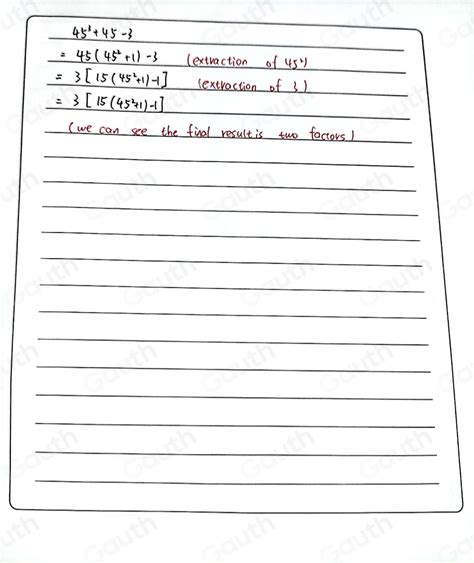 45³+45-3
= 45(45²+1)-3 (extraction of 45²)
= 3[15(45²+1)-1] (extraction of 3)
= 3[15(45²+1)-1]
(we can see the final result is two factors)